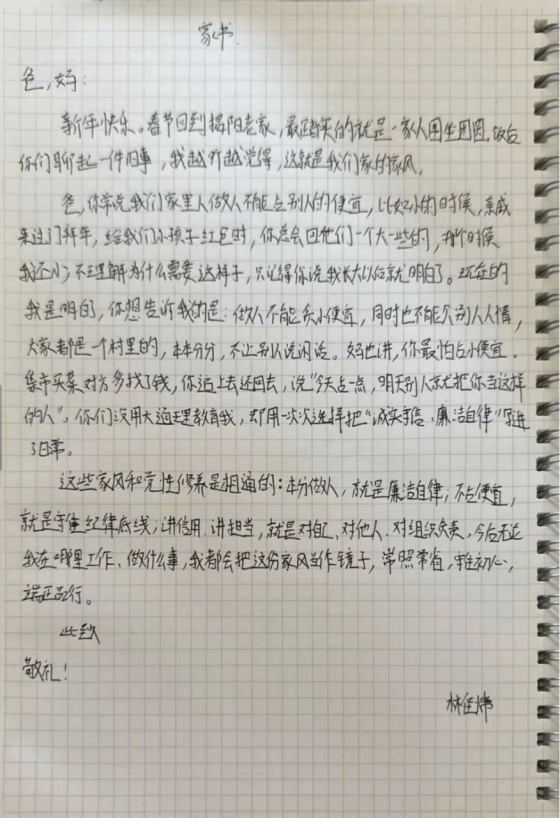 家书
爸，妈：
新年快乐。春节回到揭阳老家，最踏实的就是一家人围坐团圆。饭后
你们聊起一件旧事，我越听越觉得，这就是我们家的家风。
爸，你常说我们家里人做人不能占别人的便宜，比如小的时候，亲戚
来过门拜年，给我们小孩子红包时，你总会回他们一个大一些的，那个时候
我还小，不理解为什么需要这样子，只记得你说我长大以后就明白了。现在的
我是明白，你想告诉我的是：做人不能贪小便宜，同时也不能欠别人人情，
大家都是一个村里的，本本分分，不让别人说闲话。妈也讲，你最怕占小便宜。
集市买菜对方多找了钱，你追上去还回去，说“今天占一点，明天别人就把你当这样
的人”。你们没用大道理教育我，却用一次次选择把“诚实守信、廉洁自律”写进
了日常。
这些家风和党性修养是相通的：本分做人，就是廉洁自律；不占便宜，
就是守住纪律底线；讲信用、讲担当，就是对自己、对他人、对组织负责，今后无论
我在哪里工作、做什么事，我都会把这份家风当作镜子，常照常省，守住初心，
端正品行。
此致
敬礼！
林佳炜